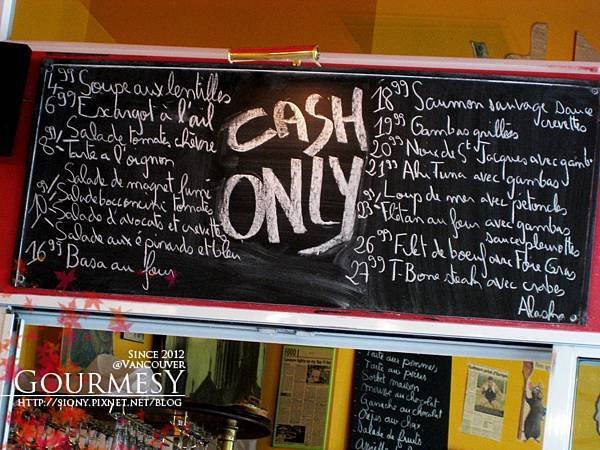 4,99 Soupe aux lentilles
6,99 Escargot à l'ail
Salade tomates chèvre
8 Tarte a l'oignon
Salade de magret fumé
Salade bocconcini tomates
10 Salade d'avocats et crevettes
Salade aux épinards et bleu
16 99 Basa au four
CASH
ONLY
18 99 Saumon sauvage sauce
crevettes
19 99 Gambas grillées
20 99 Noix de St Jacques avec gambas
21 99 Ahi Tuna avec gambas
Loup de mer avec petoncles
23 Fletan au four avec gambas
sauce pleurottes
26 99 Filet de boeuf avec Foie Gras
27 99 T-Bone steak avec crabes
Alaska
SINCE 2012
@VANCOUVER
GOURMESY
HTTP://SIONY.PIXNET.NET/BLOG
Tarte aux pommes
Tarte aux poires
Sorbet maison
Mousse au chocolat
Ganache au chocolat
Salade de fruits